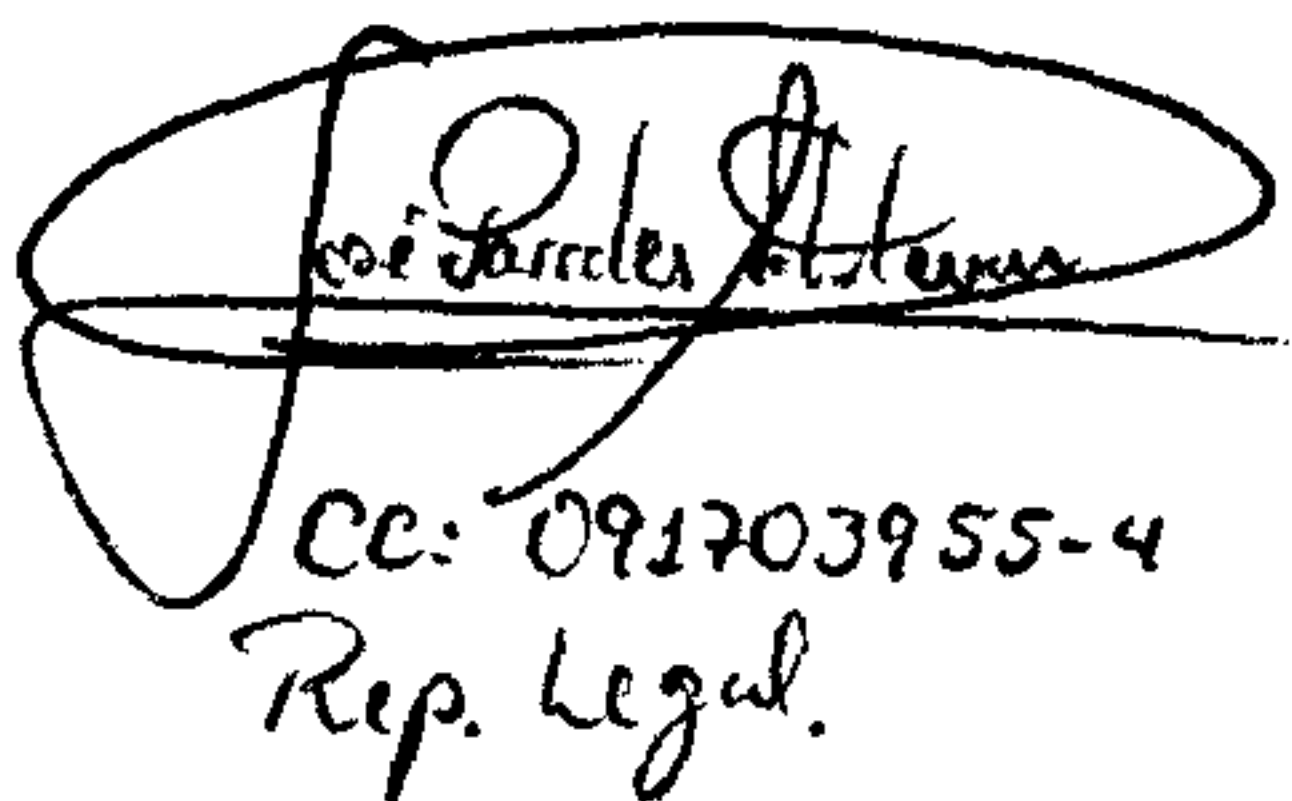 José Paredes
CC: 091703955-4
Rep. Legal.